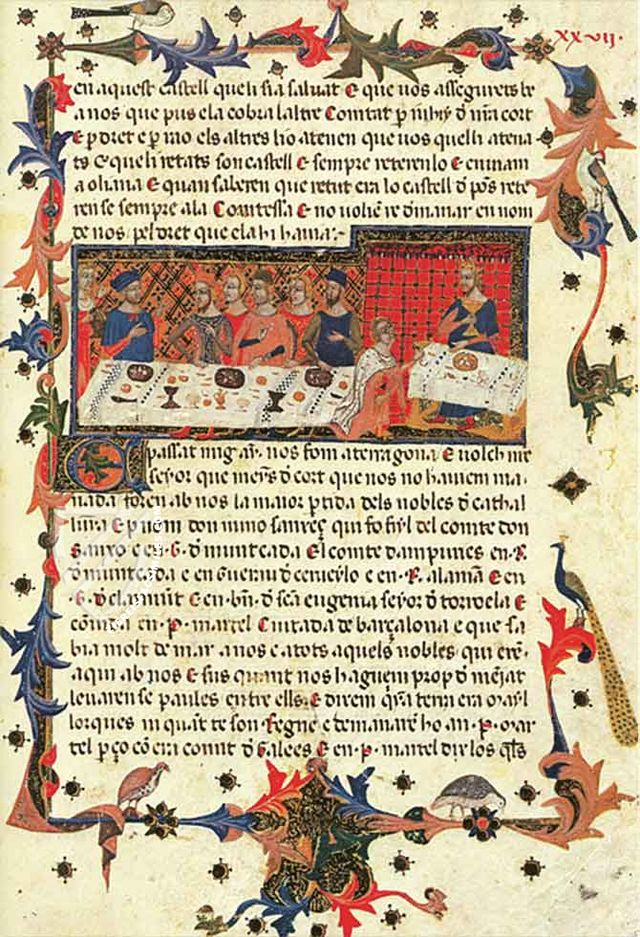 xxvij.
en aquest castell que li sia saluat E que uos assegurets be
a nos que pus ela cobra laltre Comtat p nihij d nr̄a cort
E p dret e p mo els altres ho atenen que uos quelli atena
ts e queli retats son castell E sempre reterenlo E en mam
a oliana E quan saberen que retut era lo castell d pōs rete
ren se sempre ala Comtessa E no uolie re dmanar en nom
de nos pel dret que ela hi hauia.
passat mig ay. nos fom a terragona E uolch nr̄e
seyor que meyns d cort que nos no hauem ma
nada foren ab nos la maior ptida dels nobles d cathal
unya E p nom don nuno sanxeç qui fo fiyl del comte don
Sanxo e en .G. d muntcada El comte dampuries en .R.
d muntcada e en Guerau d cerueylo e en .R. alamā E en
.G. d claramūt E en .bn. d scā eugenia seyor d torroela E
comta en .p. martel Ciutada de barçalona e que sa
bia molt de mar a nos e a tots aquels nobles qui eren
aqui ab nos E sus quant nos haguem prop d menjat
leuaren se paraules entre ells. E dixem qn̄a terra era mayl
lorques ni quāt te son Regne e demanarē ho an .p. mar
tel p ço cō era comit d Galees E en .p. martel dix los q̄ls